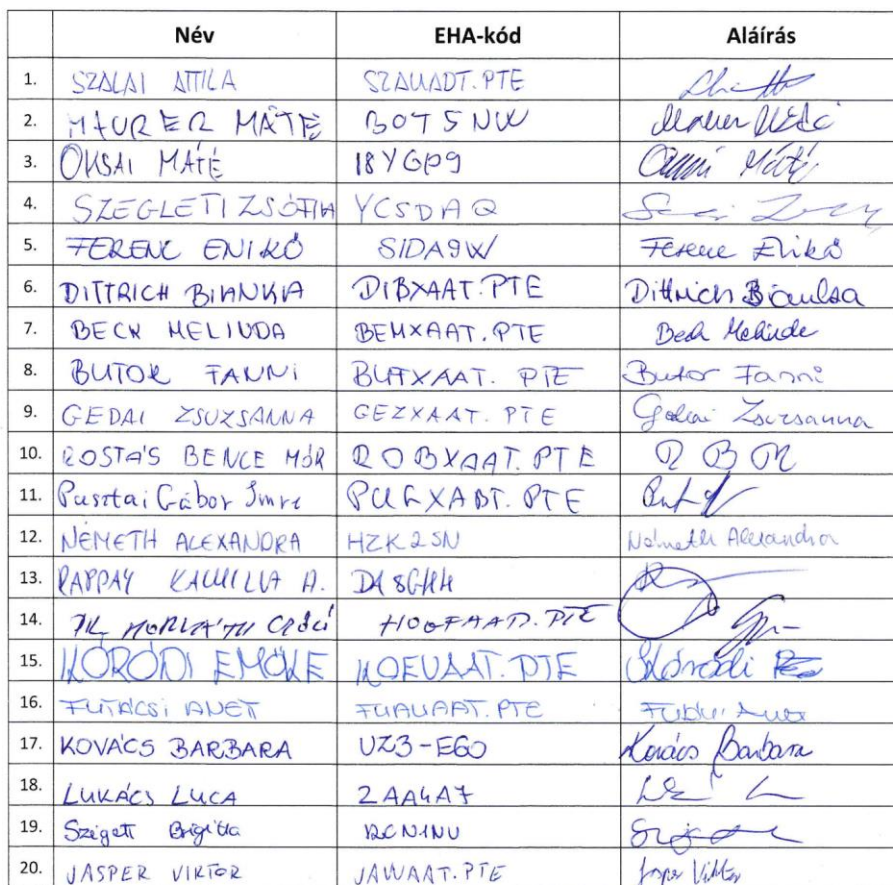 Név EHA-kód Aláírás
1. SZALAI ATTILA SZAUADT.PTE
2. MAURER MÁTÉ BOT5NW Maurer Máté
3. OKSAI MÁTÉ 18YGP9 Máté
4. SZEGLETI ZSÓFIA YCSDAQ
5. FERENC ENIKŐ SIDA9W Ferenc Enikő
6. DITTRICH BIANKA DIBXAAT.PTE Dittrich Bianka
7. BECK MELINDA BEMXAAT.PTE Beck Melinda
8. BUTOR FANNI BUFXAAT.PTE Butor Fanni
9. GEDAI ZSUZSANNA GEZXAAT.PTE Gedai Zsuzsanna
10. ROSTÁS BENCE MÓR ROBXAAT.PTE R B M
11. Pusztai Gábor Imre PUGXABT.PTE
12. NÉMETH ALEXANDRA HZK2SN Németh Alexandra
13. PAPPAY KAMILLA A.
14. HOGFAAD.PTE
15. KÓRÓDI EMŐKE KOEUAAT.PTE Kóródi
16. FUTÁCSI ANET FUAUAAT.PTE
17. KOVÁCS BARBARA UZ3-EGO Kovács Barbara
18. LUKÁCS LUCA 2AA4A7
19. Szigeti Brigitta RCN1NU
20. JASPER VIKTOR JAVAAT.PTE Jasper Viktor